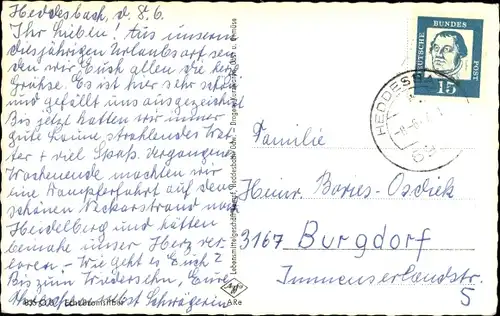 Heddesbach, d. 8.6.
Ihr Lieben! Aus unserem
diesjährigen Urlaubsort sen-
den wir Euch allen die herz.
Grüße. Es ist hier sehr schön
und gefällt uns ausgezeichnet
Bis jetzt hatten wir immer
gute Laune, strahlendes Wet-
ter + viel Spaß. Vergangenes
Wochenende machten wir
eine Dampferfahrt auf dem
schönen Neckarstrand nach
Heidelberg und hätten
beinahe unser Herz ver-
loren. Wie geht es Euch?
Bis zum Wiedersehn, Eure
nebst Schwägerin
DEUTSCHE BUNDES POST
15
HEDDESB
69
Familie
Heinr. Bories-Osdiek
3167 Burgdorf
Immenserlandstr.
5
Lebensmittelgeschäft Heddesbach/Odw. Obst u. Gemüse
ARe